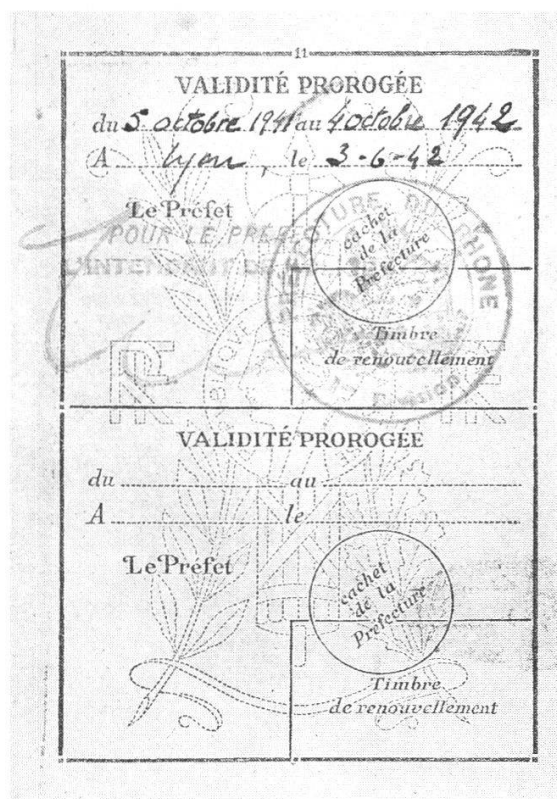 11
VALIDITÉ PROROGÉE
du 5 octobre 1941 au 4 octobre 1942
A Lyon, le 3-6-42
Le Préfet
POUR LE PRÉFET,
L'INTENDANT DE
PRÉFECTURE DU RHÔNE
cachet
de la
Préfecture
Timbre
de renouvellement
RF
RF
VALIDITÉ PROROGÉE
du au
A le
Le Préfet
cachet
de la
Préfecture
Timbre
de renouvellement